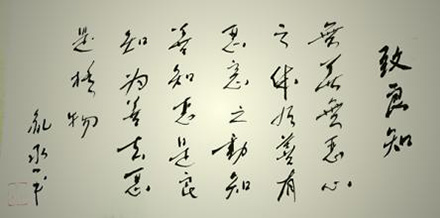 致良知
無善無惡心
之体有善有
惡意之動知
善知惡是良
知為善去惡
是格物